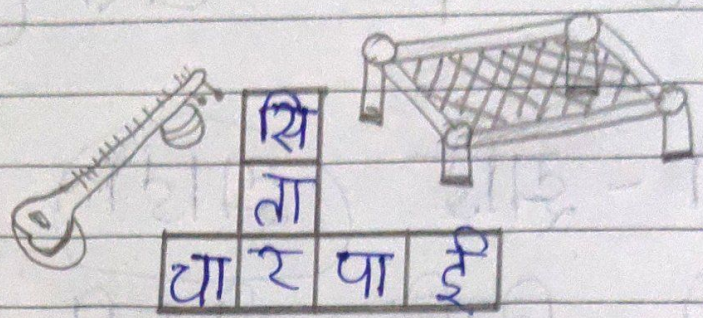 सि
ता
चा र पा ई